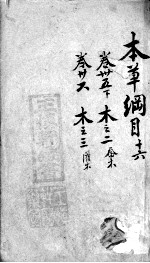 本草綱目 十六
卷卅五下 木之二 喬木
卷卅六 木之三 灌木